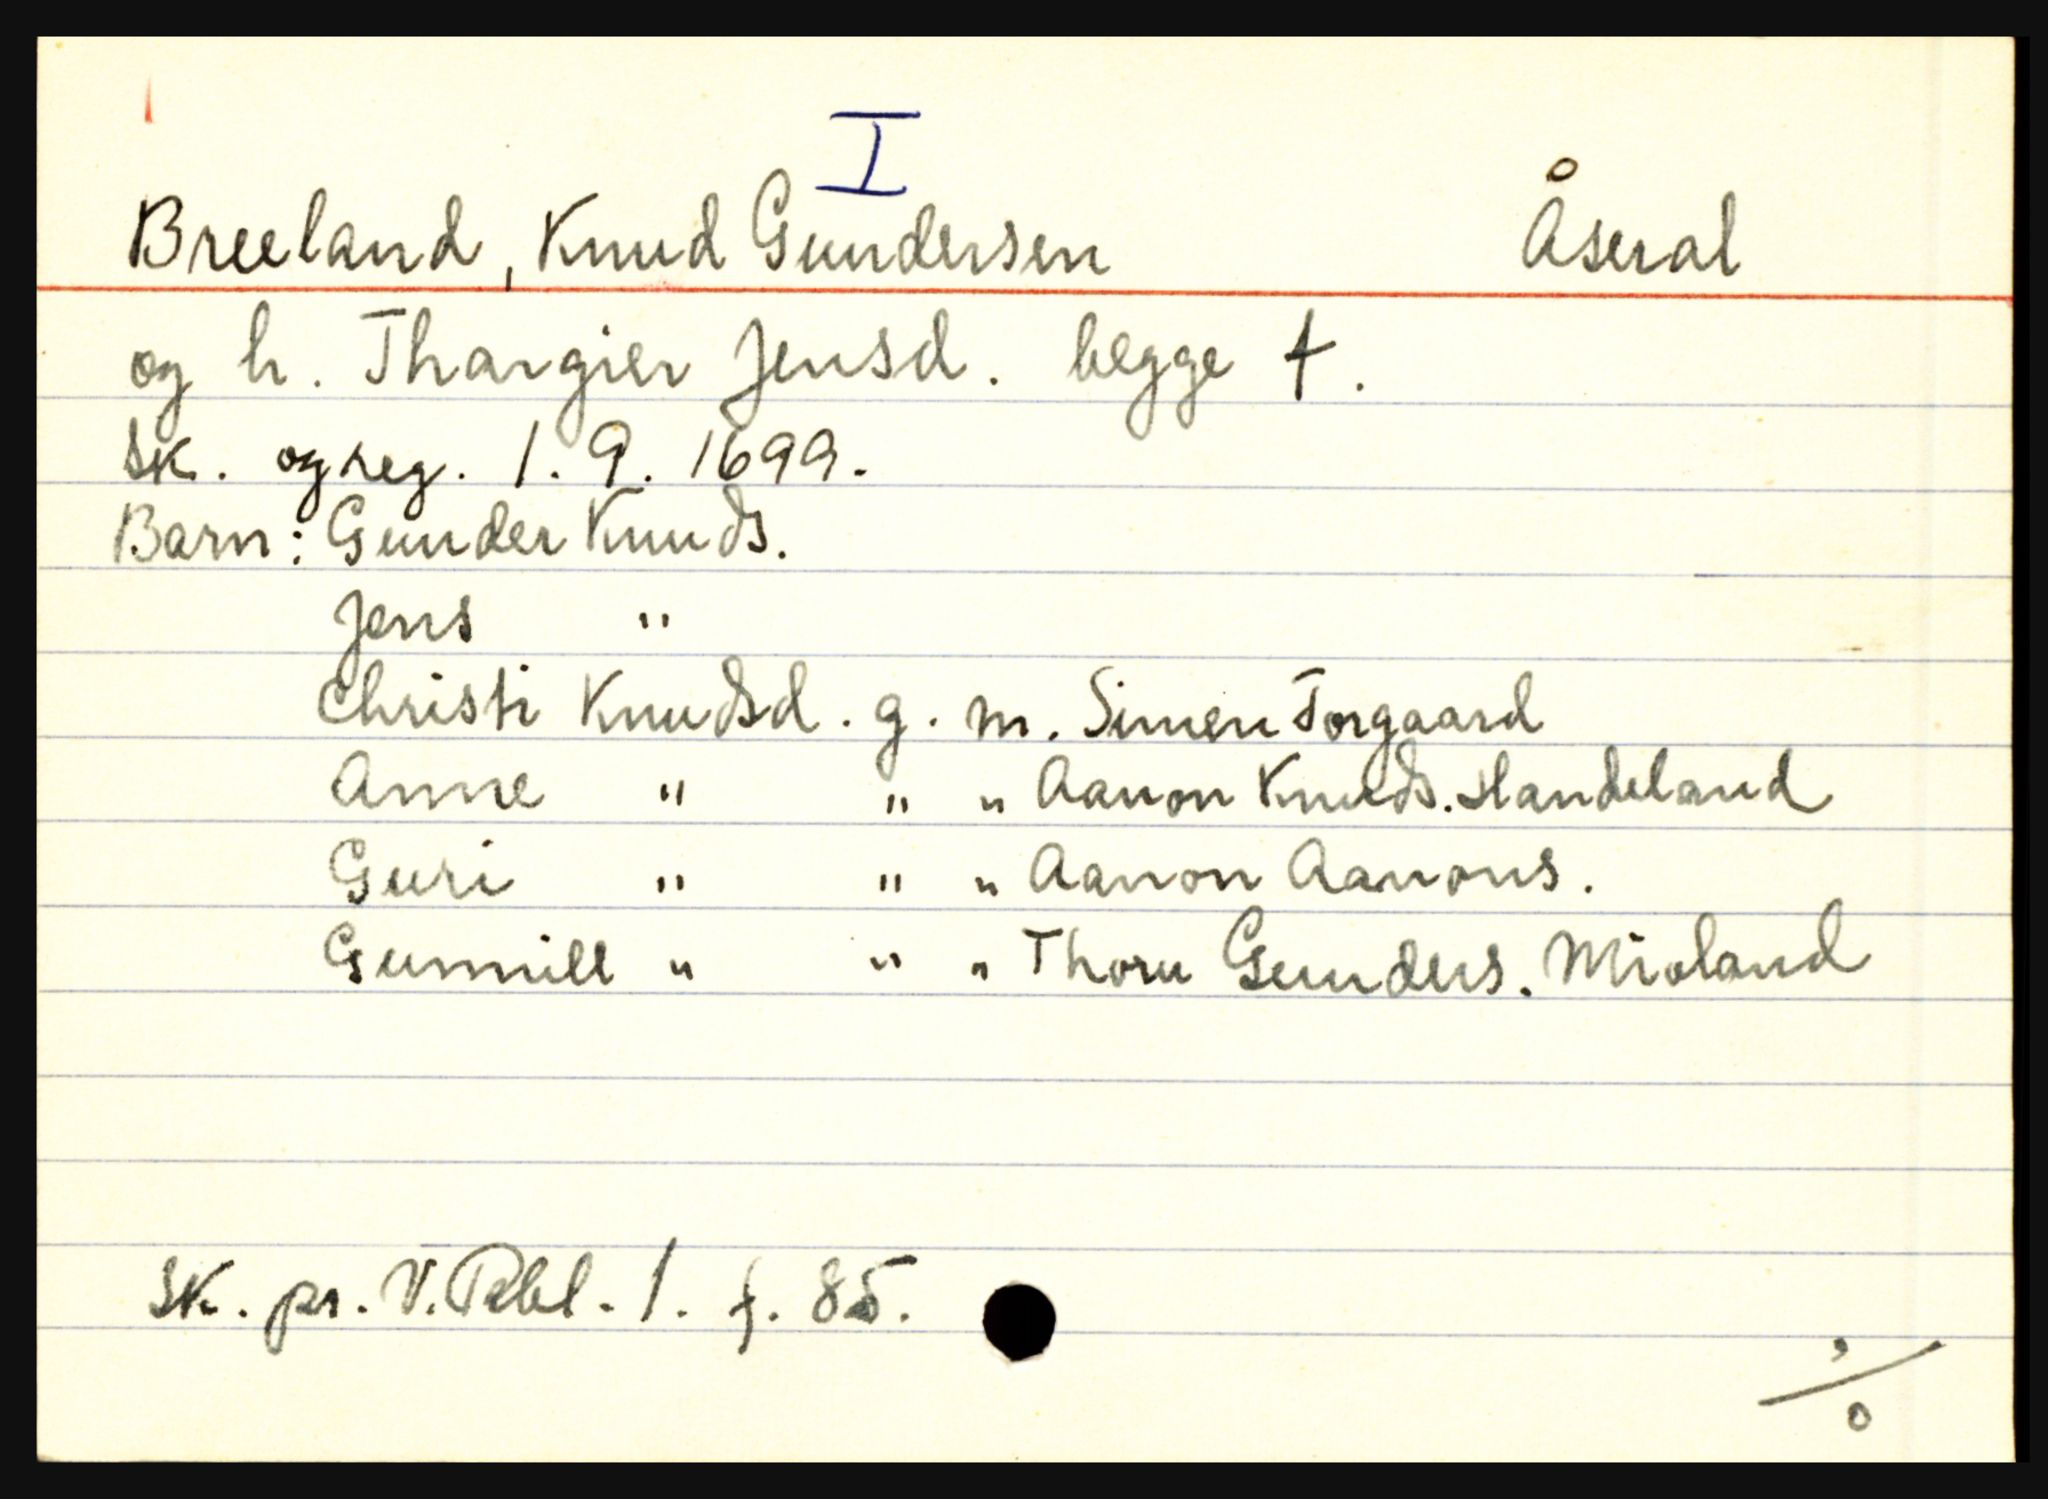 I
Breeland, Knud Gundersen Åseral
og h. Thargier Jensd. begge †.
Sk. og reg. 1. 9. 1699.
Barn: Gunder Knuds.
Jens "
Christi Knudsd. g. m. Simen Torgaard
Anne " " " Aanon Knuds. Handeland
Guri " " " Aanon Aanons.
Gunnill " " " Thoru Gunders. Mioland
Sk. pr. V. Rbl. 1. f. 85.
%